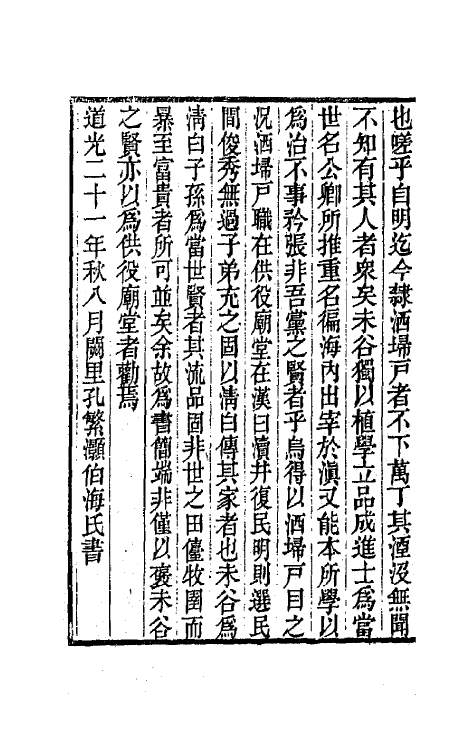 也嗟乎自明迄今隸洒埽戸者不下萬丁其湮沒無聞
不知有其人者衆矣未谷獨以植學立品成進士爲當
世名公卿所推重名徧海內出宰於滇又能本所學以
爲治不事矜張非吾黨之賢者乎烏得以洒埽戸目之
况洒埽戸職在供役廟堂在漢曰瀆井復民明則選民
間俊秀無過子弟充之固以清白傳其家者也未谷爲
清白子孫爲當世賢者其流品固非世之田儓牧圉而
暴至富貴者所可並矣余故爲書簡端非僅以褒未谷
之賢亦以爲供役廟堂者勸焉
道光二十一年秋八月闕里孔繁灝伯海氏書